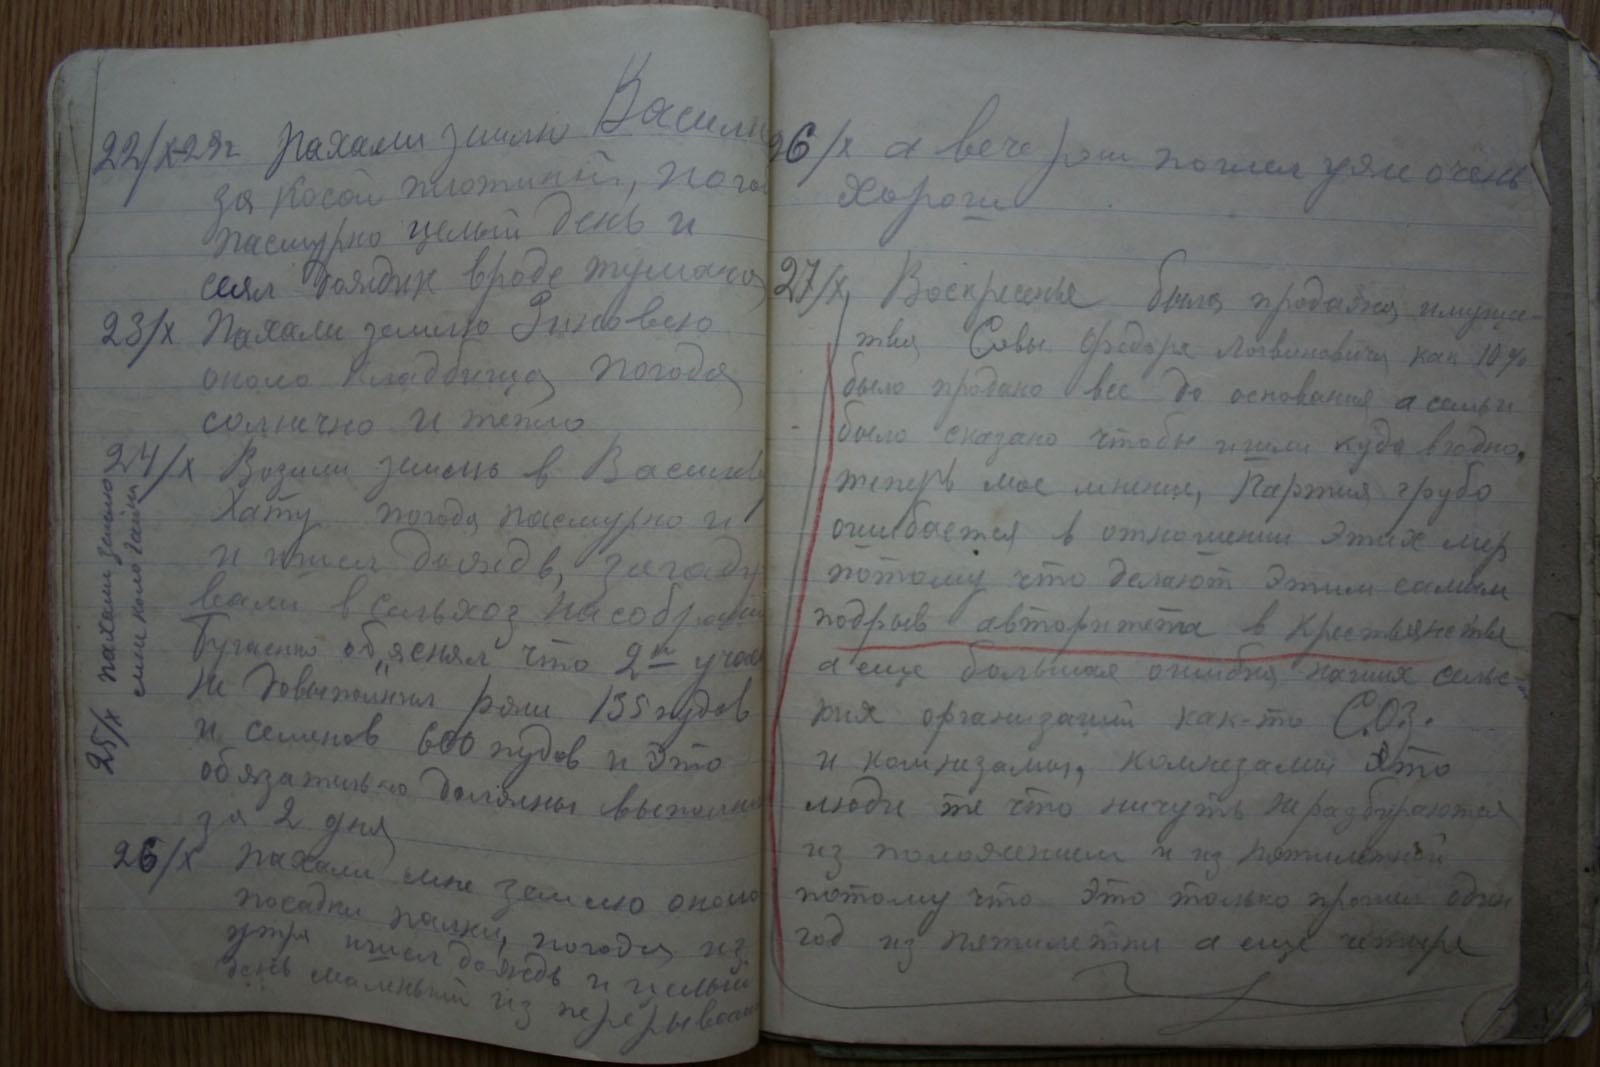 22/X-29г пахали землю Василию
за косой плотиной, пого
пасмурно целый день и
сеял дождик вроде тумана
23/X Пахали землю Зиновею
около кладбища погода
солнечно и тепло
24/X Возили землю в Василеву
Хату погода пасмурно и
и ишел дождь, загаду
вали в сельхоз на собрании
Бугаенко объяснял что 2й учас
не довыполнил ржи 135 пудов
и семенов 600 пудов и это
обязательно должны выполнить
за 2 дня
25/X пахали землю
ему коло гайки
26/X пахали мне землю около
посадки палки, погода из
утра ишел дождь и целый
день маленький из перерывами
26/X а вечером пошел уже очень
хорош
27/X, Воскресенья была продажа имуще-
тва Совы Федора Логвиновича как 10%
было продано все до основания а семьи
было сказано чтобы ишли куда вгодно,
теперь мое мнение, Партия грубо
ошибается в отношении этих мер
потому что делают этим самым
подрыв авторитета в крестьянстве
а еще большая ошибка наших сельс-
ких организаций как-то С.О.З.
и комнезамы, комнезамы это
люди те что ничуть неразбираются
из положением и из пятилеткой
потому что это только прошел один
год из пятилетки а еще четыре